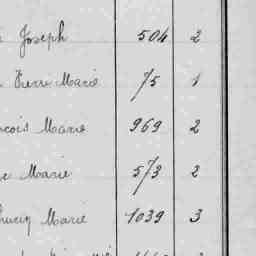 Joseph 504 2
Pierre Marie 75 1
Marie 969 2
Marie 573 2
Marie 1039 3